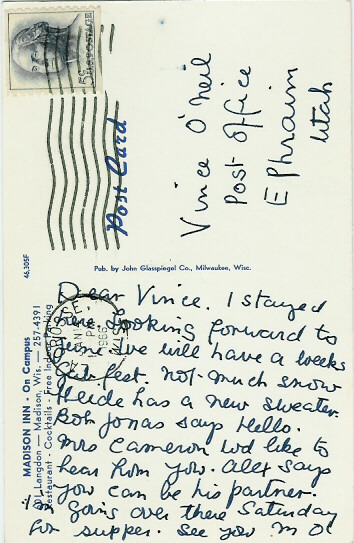 5¢ U.S. POSTAGE
Post Card
Vince O'Neil
Post Office
Ephraim
Utah
46,305F
Pub. by John Glasspiegel Co., Milwaukee, Wisc.
MADISON INN - On Campus
Langdon — Madison, Wis. — 257-4391
Restaurant - Cocktails - Free Indoor Parking
LA CROSSE
PM
1966
WIS
Dear Vince. I stayed
here. Looking forward to
June. We will have a weeks
gabfest. Not much snow
Heide has a new sweater.
Bob Jonas says Hello.
Mrs Cameron wd like to
hear from you. Alex says
you can be his partner.
I'm going over there Saturday
for supper. See you M O'